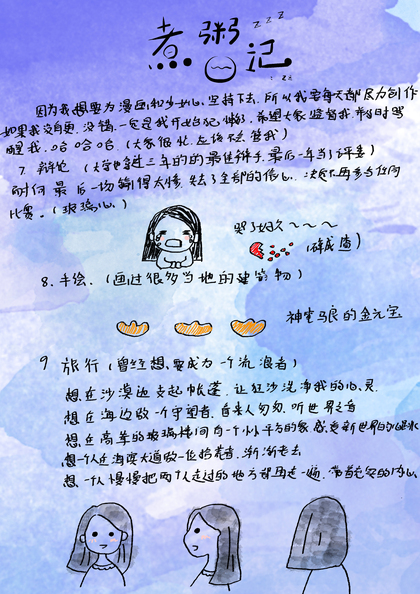 煮粥日记
zzz
因为我想要为漫画和少女心坚持下去.所以我要每天都尽力创作
如果我没自更.没错.一定是我开始犯懒了.希望大家监督我.并及时骂
醒我.哈哈哈.(大家很忙.应该不管我)
7. 辩论.(大学蝉联三年的的最佳辩手.最后一年当了评委)
最后一场输得太惨.失去了全部的信心.决定不再参与任何
比赛.(玻璃心)
哭了好久~~~~
(碎成渣)
8.手绘.(画过很多当地的建筑物)
神笔马良的金元宝
9 旅行(曾经想要成为一个流浪者)
想在沙漠边支起帐蓬.让狂沙洗净我的心灵
想在海边做一个守望者.看来人匆匆.听世界之音
想在高耸的玻璃楼间有一个小平方的家.感受新世界的心跳
想一个人在海滨大道做一位拾荒者.渐渐老去
想一个人慢慢把两个人走过的地方都再走一遍.带着安的内心